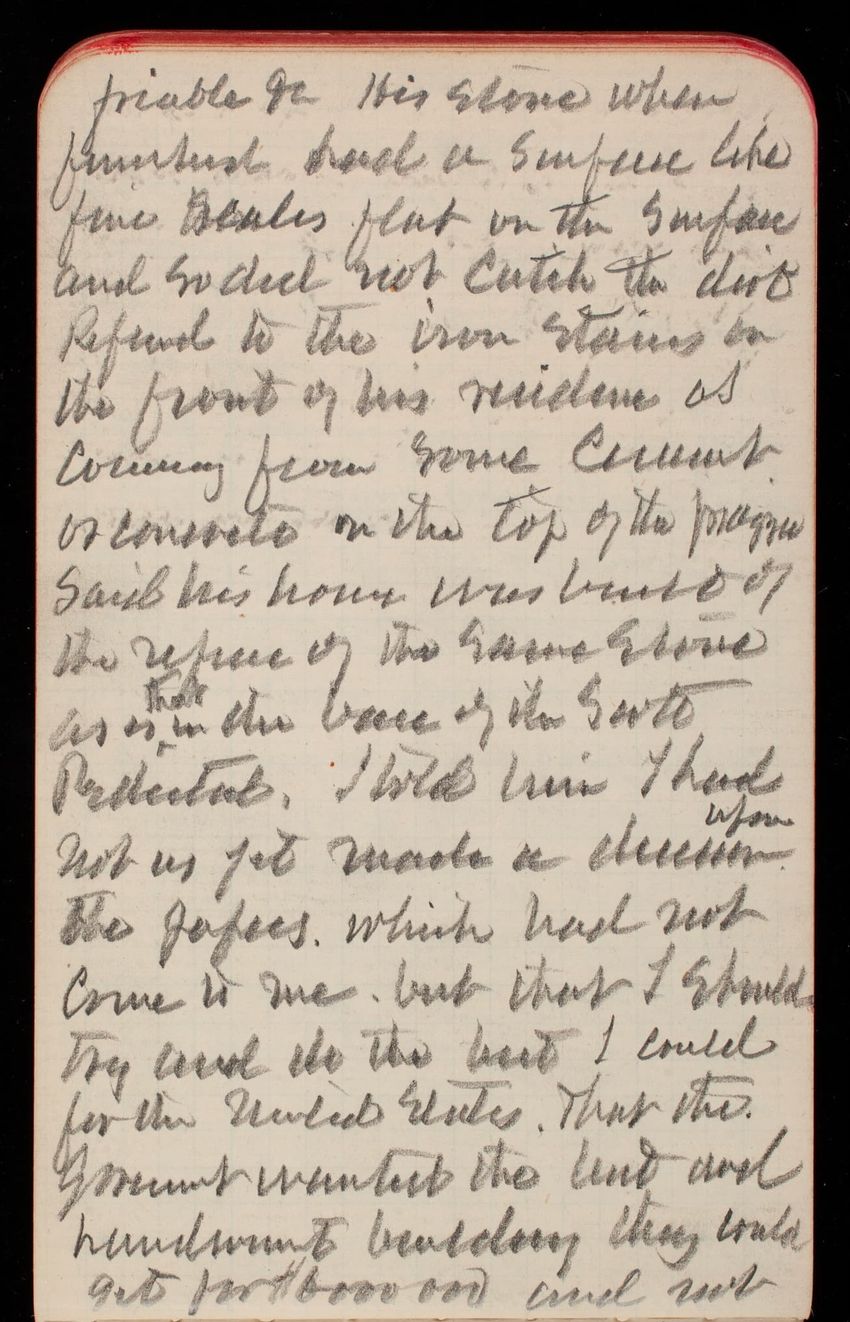 friable &c His stone when
finished had a surface like
fine Scales flat on the surface
and so did not Catch the dirt
Refered to the iron Stains on
the front of his residence as
Coming from some Cement
or concrete on the top of the
Said his house was built of
the refuse of the same Stone
as is that in the base of the Scott
Pedestal. I told him I had
not as yet made a decision upon
the papers. which had not
Come to me. but that I should
try and do the best I could
for the United States. That the
Goverment wanted the best and
handsomest building they could
get for $6000000 and not